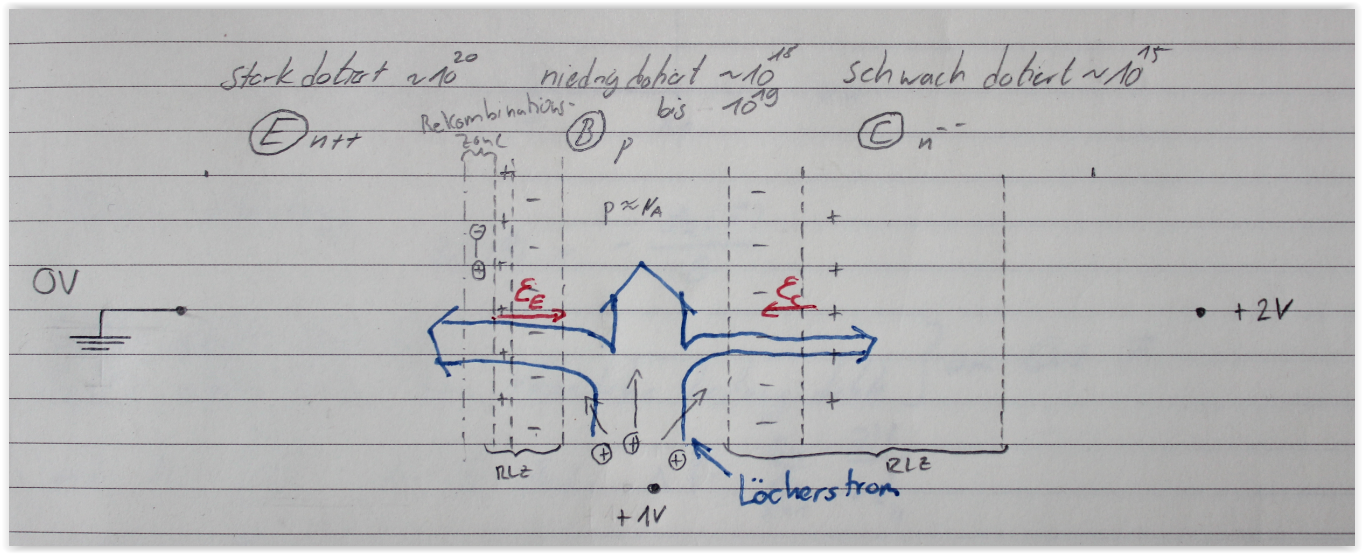 stark dotiert ~10^20 niedrig dotiert ~10^18 schwach dotiert ~10^15
bis 10^19
Rekombinations-
zone
E n++ B p C n--
p ≈ N_A
0V
Ɛ_E Ɛ_C
+2V
RLZ RLZ
Löcherstrom
+1V